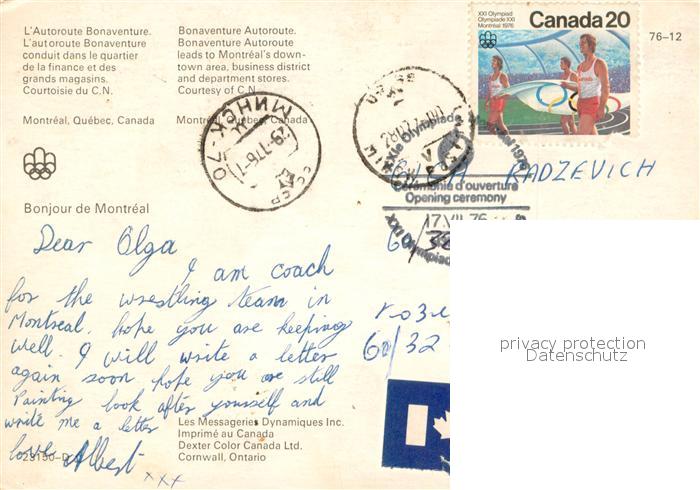 L'Autoroute Bonaventure.
L'autoroute Bonaventure
conduit dans le quartier
de la finance et des
grands magasins.
Courtoisie du C.N.
Montréal, Québec, Canada
Bonaventure Autoroute.
Bonaventure Autoroute
leads to Montréal's down-
town area, business district
and department stores.
Courtesy of C.N.
Montreal, Quebec, Canada
XXI Olympiad
Olympiade XXI
Montréal 1976
Canada 20
76-12
МИНСК-70
XXIe Olympiade Montréal 1976
Cérémonie d'ouverture
Opening ceremony
17.VII.76
XXI Olympiad
RADZEVICH
Bonjour de Montréal
Dear Olga
I am coach
for the wrestling team in
Montreal. hope you are keeping
well. I will write a letter
again soon hope you are still
Painting look after yourself and
write me a letter
love Albert
xxx
60/32
privacy protection
Datenschutz
Les Messageries Dynamiques Inc.
Imprimé au Canada
Dexter Color Canada Ltd.
Cornwall, Ontario